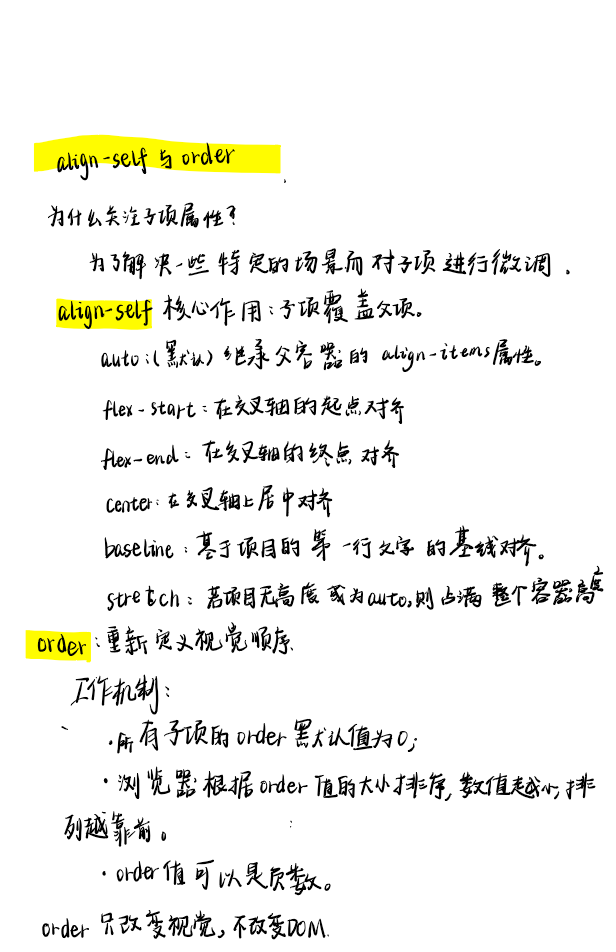 align-self 与 order
为什么关注子项属性?
为了解决一些特定的场景而对子项进行微调。
align-self 核心作用:子项覆盖父项。
auto:(默认)继承父容器的 align-items属性。
flex-start:在交叉轴的起点对齐
flex-end:在交叉轴的终点对齐
center:在交叉轴上居中对齐
baseline:基于项目的第一行文字的基线对齐。
stretch:若项目无高度或为auto,则占满整个容器高度
order:重新定义视觉顺序.
工作机制:
·所有子项的order默认值为0;
·浏览器根据order值的大小排序,数值越小,排
列越靠前。
·order值可以是负数。
order 只改变视觉,不改变DOM.